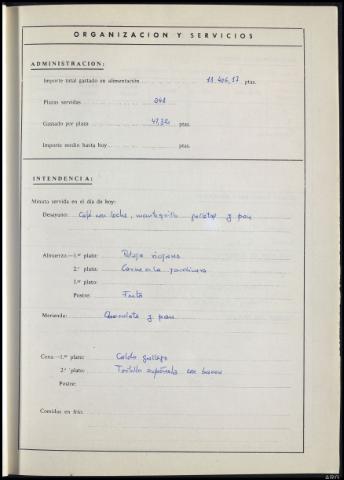 ORGANIZACION Y SERVICIOS
ADMINISTRACION:
Importe total gastado en alimentación 11.406,17 ptas.
Plazas servidas 241
Gastado por plaza 47,32 ptas.
Importe medio hasta hoy ptas.
INTENDENCIA:
Minuta servida en el día de hoy:
Desayuno: Café con leche, mantequilla galletas y pan
Almuerzo.—1.er plato: riojana
2.º plato: Carne a la jardinera
3.er plato:
Postre: Fruta
Merienda: Chocolate y pan
Cena.—1.er plato: Caldo gallego
2.º plato: Tortilla española con
Postre:
Comidas en frío: